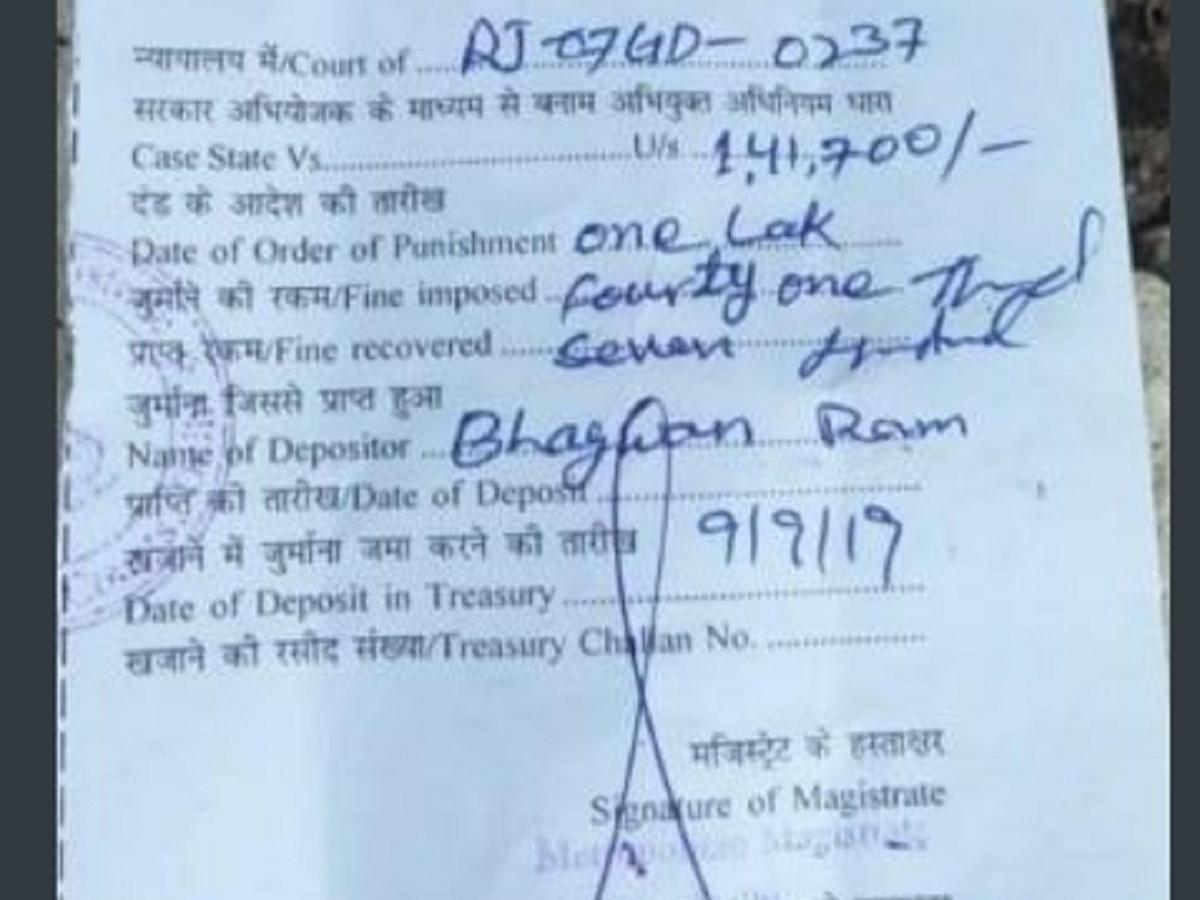 न्यायालय में/Court of ....RJ-07GD-0237
सरकार अभियोजक के माध्यम से बनाम अभियुक्त अधिनियम धारा
Case State Vs..........................................U/s ..1,41,700/-
दंड के आदेश की तारीख
Date of Order of Punishment one Lak
जुर्माने की रकम/Fine imposed ..fourty one
प्राप्त रकम/Fine recovered ......seven
जुर्माना जिससे प्राप्त हुआ
Name of Depositor ...Bhagwan Ram
प्राप्ति की तारीख/Date of Deposit........................................
खजाने में जुर्माना जमा करने की तारीख 9/9/19
Date of Deposit in Treasury.............................................
खजाने की रसीद संख्या/Treasury Challan No. ....................
मजिस्ट्रेट के हस्ताक्षर
Signature of Magistrate
Metropolitan Magistrate